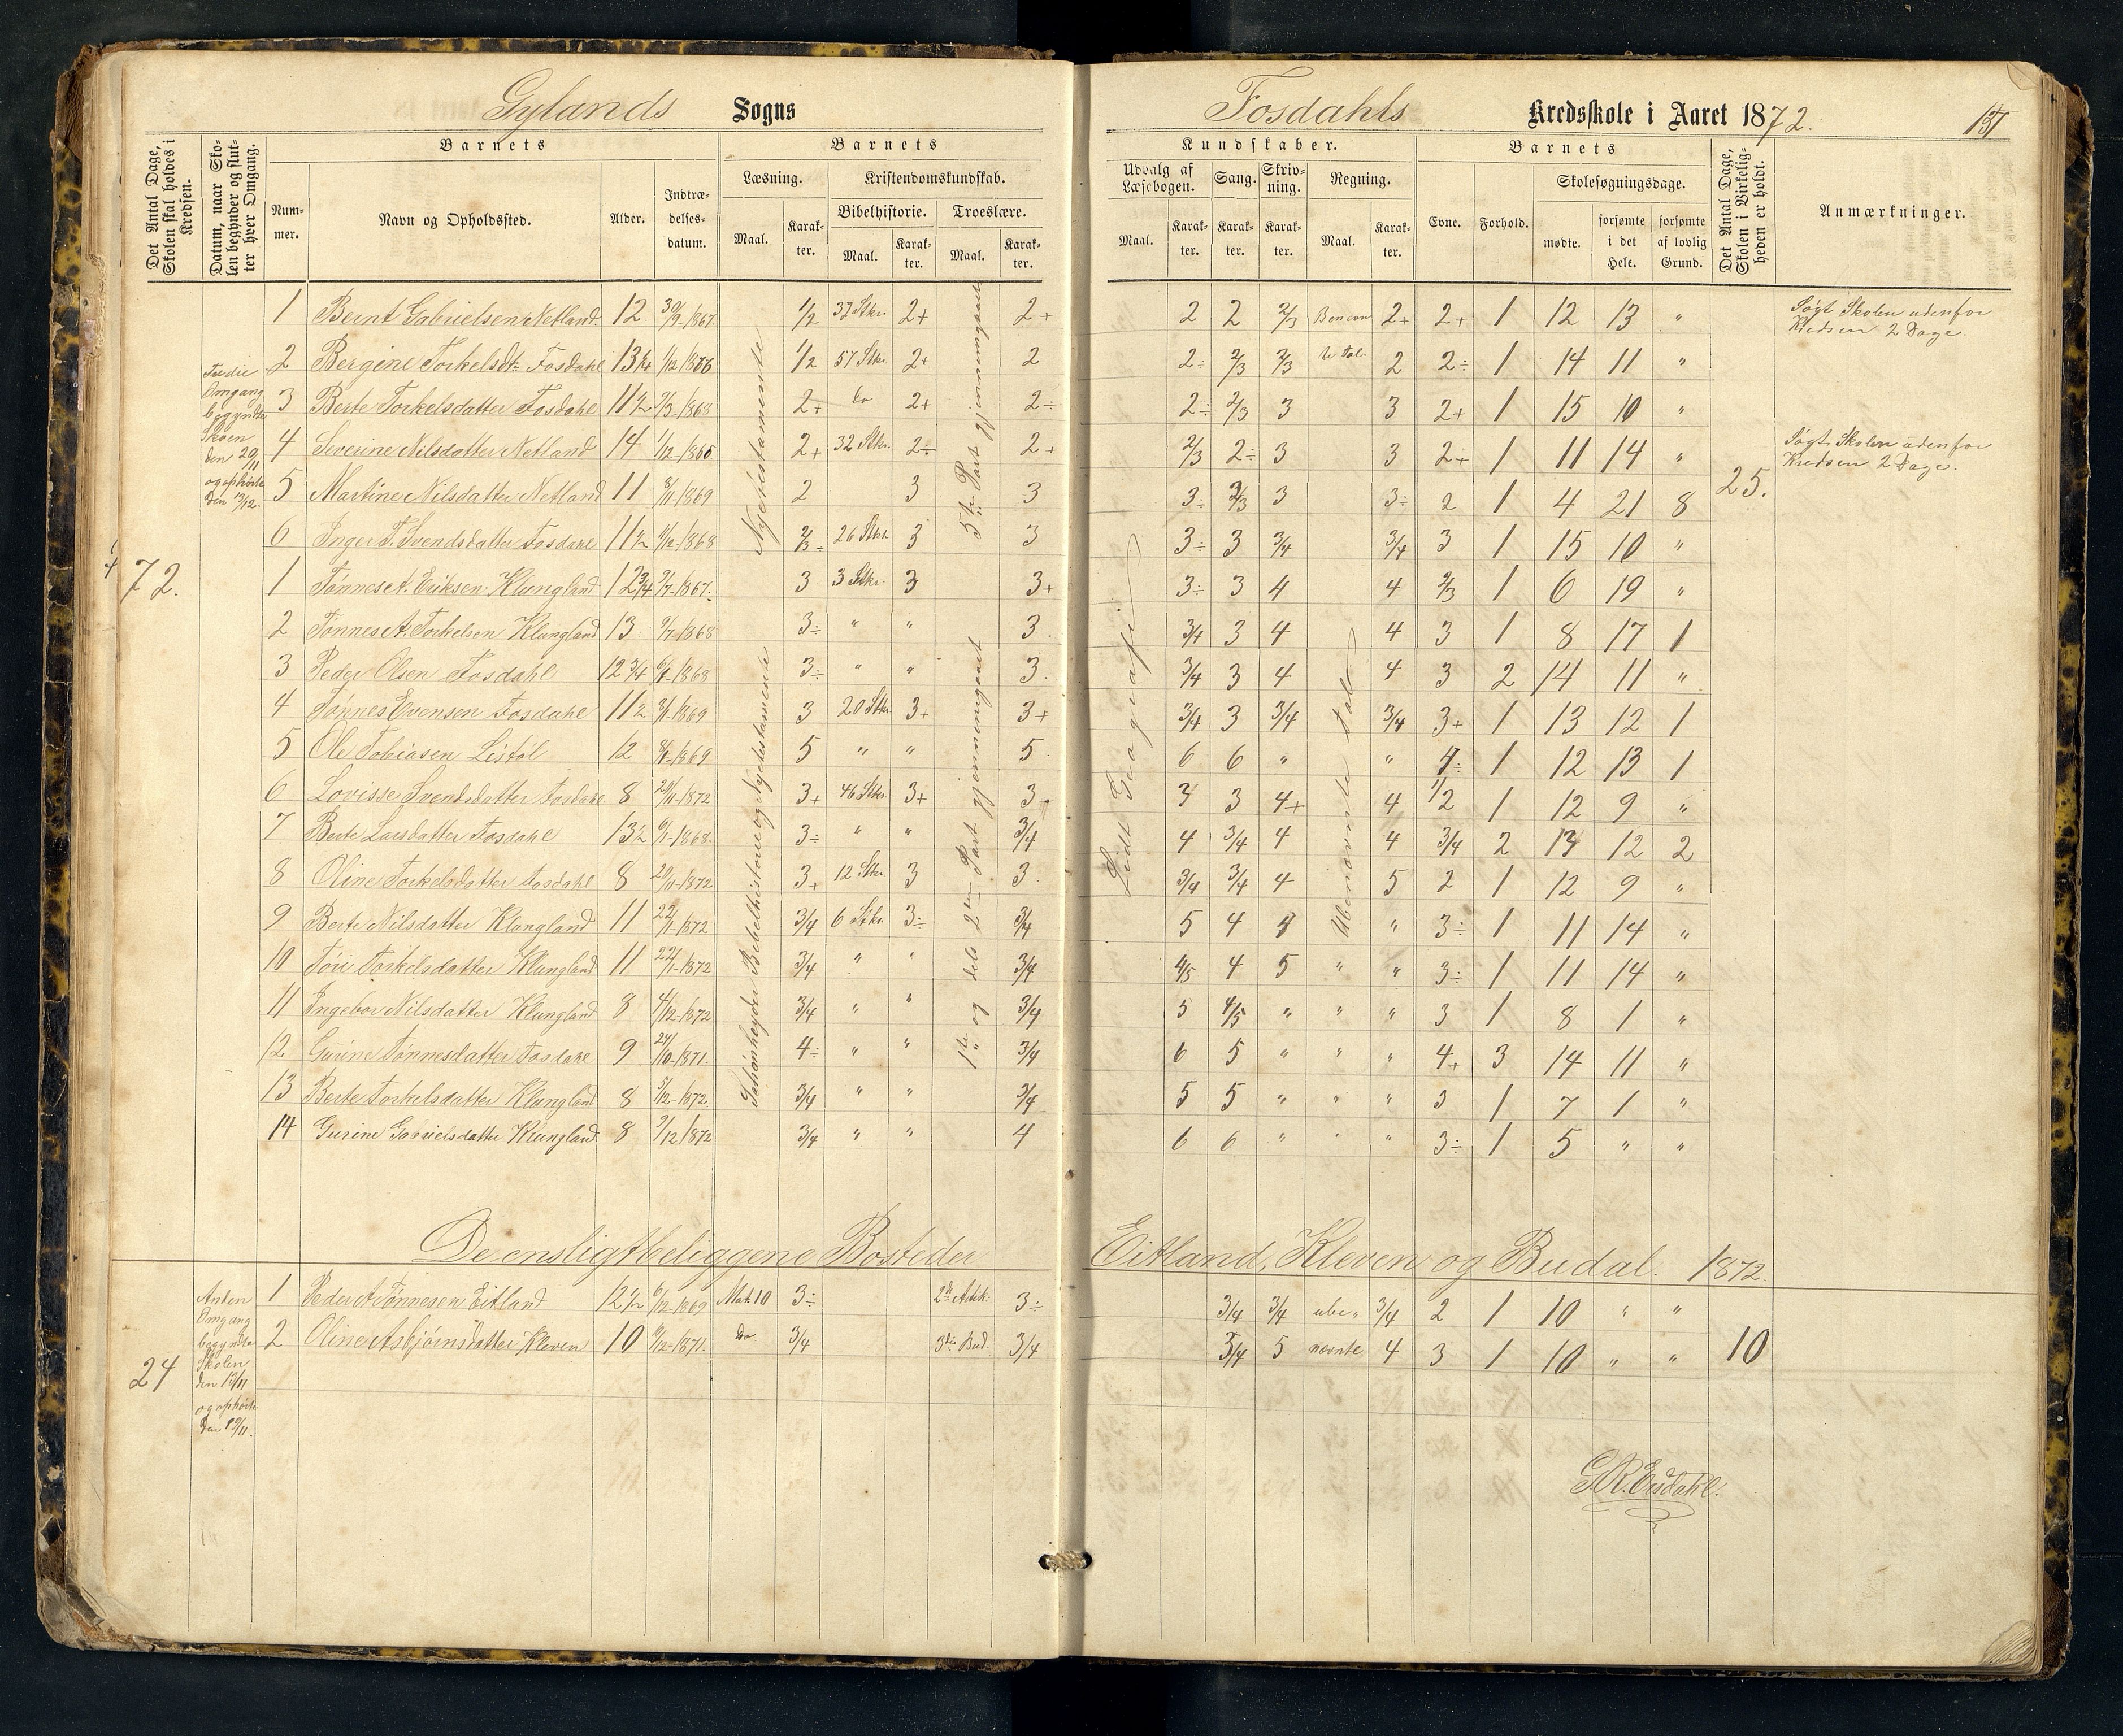 Gylands Sogns
Fosdahls Kredsskole i Aaret 1872. 137
Det Antal Dage, Skolen skal holdes i Kredsen.
Datum, naar Skolen begynder og slutter hver Omgang.
Barnets
Nummer.
Navn og Opholdssted.
Alder.
Indtrædelsesdatum.
Barnets
Læsning.
Maal. Karakter.
Kristendomskundskab.
Bibelhistorie.
Maal. Karakter.
Troeslære.
Maal. Karakter.
Kundskaber.
Udvalg af Læsebogen.
Maal. Karakter.
Sang.
Karakter.
Skrivning.
Karakter.
Regning.
Maal. Karakter.
Barnets
Evne. Forhold.
Skolesøgningsdage.
mødte. forsømte i det Hele. forsømte af lovlig Grund.
Det Antal Dage, Skolen i Virkeligheden er holdt.
Anmærkninger.
72.
Tredie Omgang begyndte Skolen den 20/11 og ophørte den 19/12.
Nyetestamente
5te Part gjennemgaaet
Schönheyders Bibelhistorie og Nyetestamente
1te og dels 2den Part gjennemgaaet
Lidt Geografi
Ubenævnte tal
25.
1 Bernt Gabrielsen Netland. 12. 30/9-1867. 1/2 37 Stkr. 2+ 2+ 2 2 2/3 Benævn 2+ 2+ 1 12 13 " Søgt Skolen udenfor Kredsen 2 Dage.
2 Bergine Torkelsdtr Fosdahl 13 1/4 1/12-1866 1/2 57 Stkr. 2+ 2 2÷ 2/3 2/3 te tal. 2 2÷ 1 14 11 "
3 Berte Torkelsdatter Fosdahl 11 1/2 2/3-1868 2+ do 2+ 2÷ 2÷ 2/3 3 3 2+ 1 15 10 "
4 Severine Nilsdatter Netland 14 1/12-1865 2+ 32 Stkr. 2÷ 2+ 2/3 2÷ 3 3 2+ 1 11 14 " Søgt Skolen udenfor Kredsen 2 Dage.
5 Martine Nilsdatter Netland 11 8/11-1869 2 3 3 3÷ 2/3 3 3÷ 2 1 4 21 8
6 Inger T. Svendsdatter Fosdahl 11 1/2 9/12-1868 2/3÷ 26 Stkr. 3 3 3÷ 3 3/4 3/4 3 1 15 10 "
1 Tønnes A. Eriksen Klungland 12 3/4 9/7-1867. 3 3 Stkr. 3 3+ 3÷ 3 4 4 2/3 1 6 19 "
2 Tønnes A. Torkelsen Klungland 13 9/7-1868 3÷ " " 3. 3/4 3 4 4 3 1 8 17 1
3 Peder Olsen Fosdahl 12 3/4 6/1-1868 3÷ " " 3. 3/4 3 4 4 3 2 14 11 "
4 Tønnes Evensen Fosdahl 11 1/2 8/1-1869 3 20 Stkr. 3+ 3+ 3/4 3 3/4 3/4 3+ 1 13 12 1
5 Ole Tobiasen Listøl 12 8/1-1869 5 " " 5. 6 6 " " 4÷ 1 12 13 1
6 Lovisse Svendsdatter Fosdahl 8 20/11-1872 3+ 46 Stkr. 3+ 3+ 3 3 4+ 4 1/2 1 12 9 "
7 Berte Larsdatter Fosdahl 13 1/2 6/1-1868. 3÷ " " 3/4 4 3/4 4 4 3/4 2 13 12 2
8 Oline Torkelsdatter Fosdahl 8 20/11-1872 3+ 12 Stkr. 3 3. 3/4 3/4 4 5 2 1 12 9 "
9 Berte Nilsdatter Klungland 11 22/1-1872 3/4 6 Stkr. 3÷ 3/4 5 4 4 " 3÷ 1 11 14 "
10 Tori Torkelsdatter Klungland 11 22/1-1872 3/4 " " 3/4 4/5 4 5 " " 3÷ 1 11 14 "
11 Ingebor Nilsdatter Klungland 8 4/12-1872 3/4 " " 3/4 5 4/5 " " " 3 1 8 1 "
12 Gurine Tønnesdatter Fosdahl 9 24/10-1871. 4÷ " " 3/4 6 5 " " " 4+ 3 14 11 "
13 Berte Torkelsdatter Klungland 8 5/12-1872 3/4 " " 3/4 5 5 " " " 3 1 7 1 "
14 Gurine Gabrielsdatter Klungland 8 9/12 1872 3/4 " " 4 6 6 " " " 3÷ 1 5 " "
De ensligtbeliggene Bosteder Eitland, Kleven og Budal. 1872.
24
Anden Omgang begyndte Skolen den 13/11 og ophørte den 19/11.
1 Peder A Tønnesen Eitland 12 1/2 6/12-1869 Mat. 10 3÷ 2den Artik. 3÷ 3/4 3/4 ube= 3/4 2 1 10 " "
2 Oline Asbjørnsdatter Kleven 10 6/12-1871. do 3/4 3die Bud. 3/4 3/4 5 nævnte 4 3 1 10 " " 10